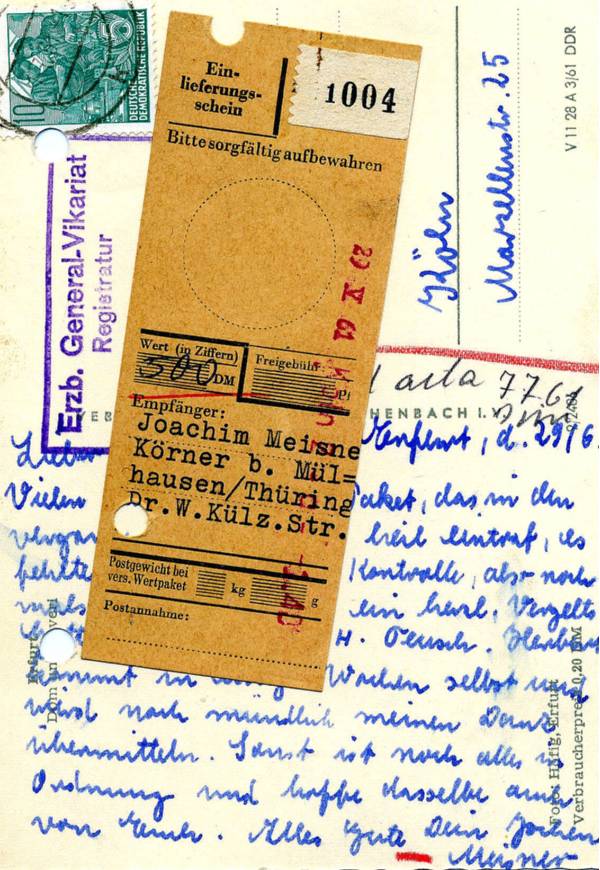 10
DEUTSCHE
DEMOKRATISCHE REPUBLIK
5
Erzb. General-Vikariat
Registratur
Ein-
lieferungs-
schein
1004
Bitte sorgfältig aufbewahren
29 V 61
Wert (in Ziffern)
500 DM
Freigebühr:
Empfänger:
Joachim Meisne
Körner b. Mül=
hausen/Thüring
Dr.W.Külz.Str.
Postgewicht bei
vers. Wertpaket
kg
g
Postannahme:
Köln
Marzellenstr. 25
V 11 28 A 3/61 DDR
acta 77 61
HENBACH I. V.
Erfurt, d. 29/6.
Vielen
Paket, das in den
heil eintraf, es
fehlte
Kontrolle, also noch
mals
ein herzl. Vergelts
H.
kommt in
Wochen selbst und
wird noch mündlich meinen Dank
übermitteln. Sonst ist noch alles in
Ordnung und hoffe dasselbe auch
von Euch. Alles Gute Dein Jochen
Meisner
Erfurt
Dom und
Foto: Häfig, Erfurt
Verbraucherpreis 0,20 DM